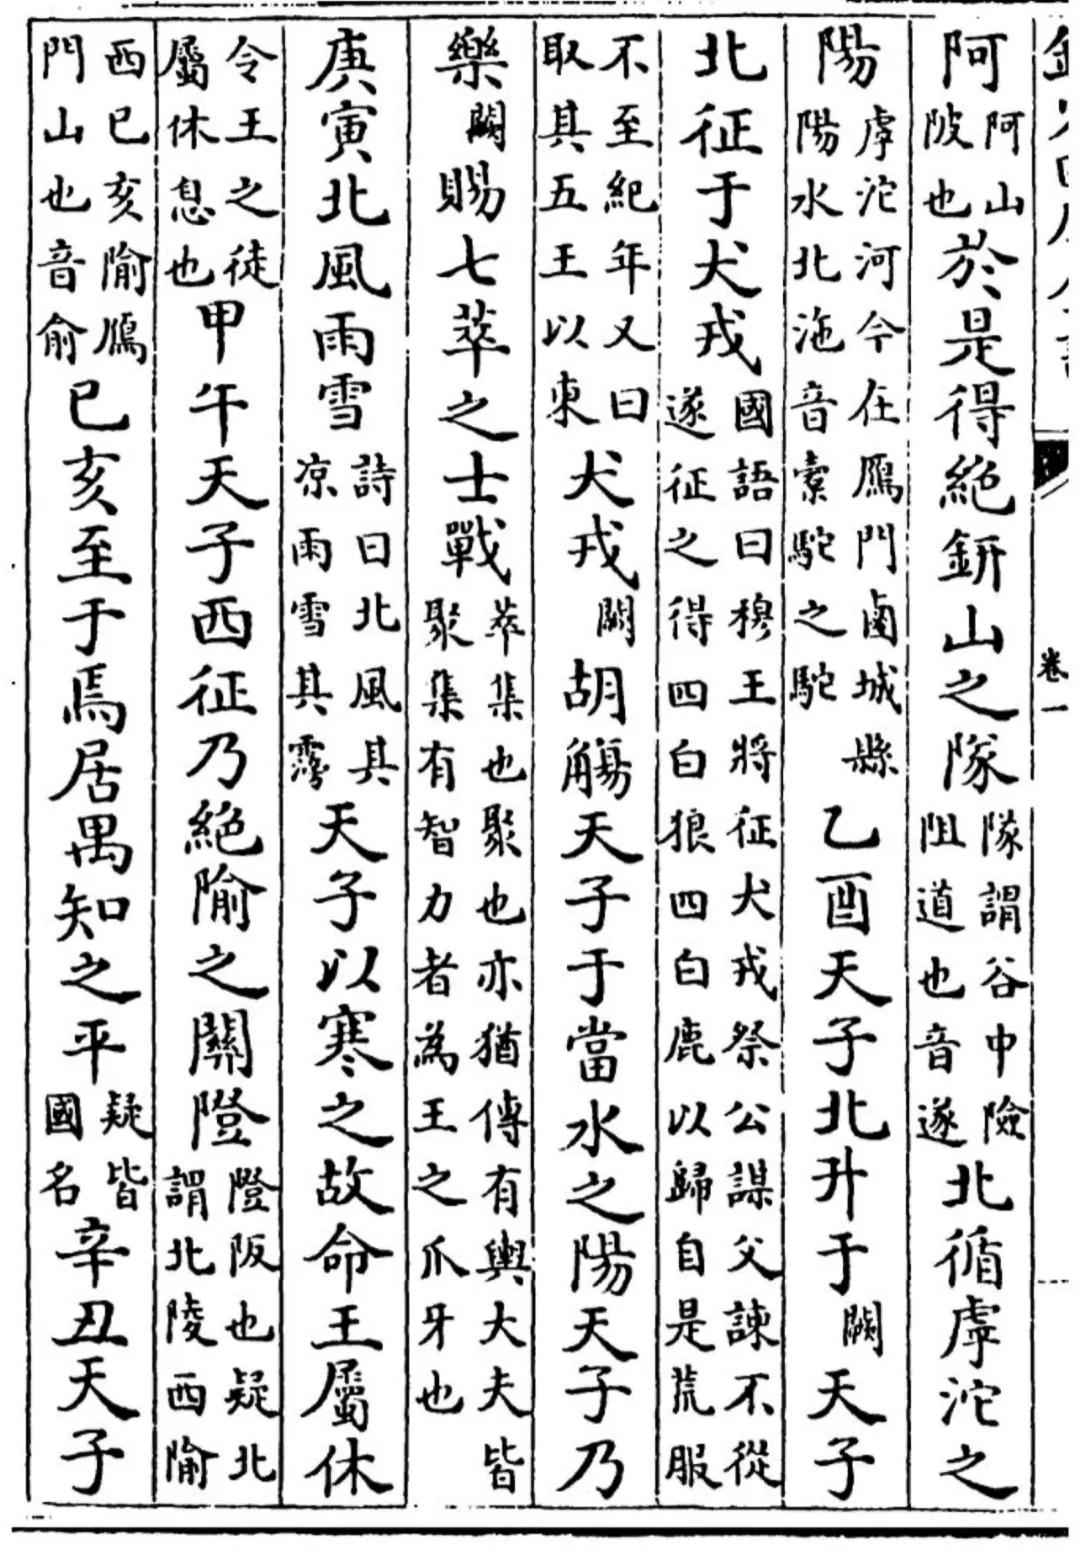 卷一
阿阿山陂也於是得絕鈃山之隊隊謂谷中險阻道也音遂北循虖沱之
陽虖沱河今在鴈門鹵城縣陽水北沲音橐駝之駝乙酉天子北升于闕天子
北征于犬戎國語曰穆王將征犬戎祭公謀父諫不從遂征之得四白狼四白鹿以歸自是荒服
不至紀年又曰取其五王以東犬戎闕胡觴天子于當水之陽天子乃
樂闕賜七萃之士戰萃集也聚也亦猶傳有輿大夫皆聚集有智力者為王之爪牙也
庚寅北風雨雪詩曰北風其凉雨雪其霶天子以寒之故命王屬休
令王之徒屬休息也甲午天子西征乃絕隃之關隥隥阪也疑北謂北陵西隃
西巳亥隃鴈門山也音俞巳亥至于焉居禺知之平疑皆國名辛丑天子